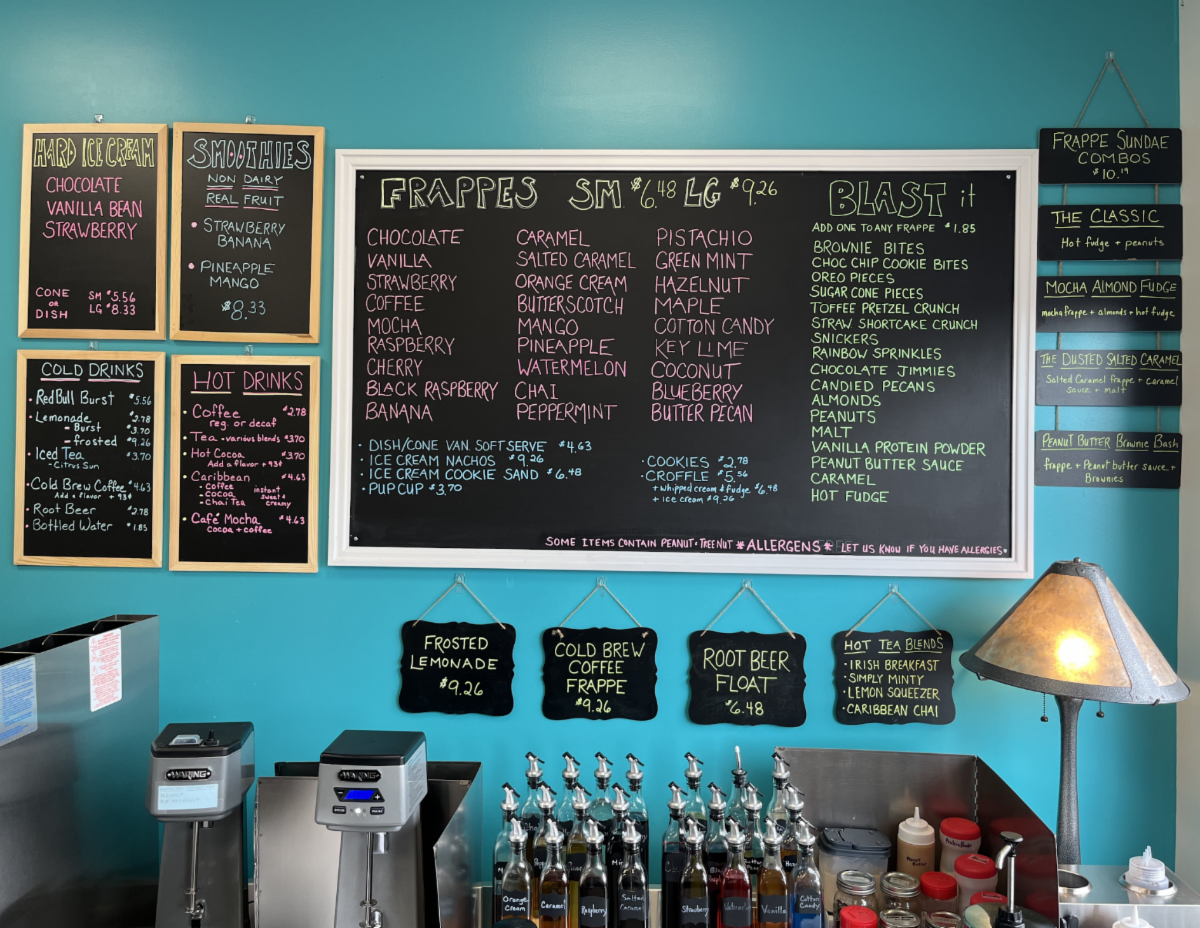 HARD ICE CREAM
CHOCOLATE
VANILLA BEAN
STRAWBERRY
CONE
OR
DISH
SM $5.56
LG $8.33
SMOOTHIES
NON DAIRY
REAL FRUIT
• STRAWBERRY
BANANA
• PINEAPPLE
MANGO
$8.33
COLD DRINKS
• Red Bull Burst $5.56
• Lemonade $2.78
- Burst $3.70
- frosted $9.26
• Iced Tea $3.70
- Citrus Sun
• Cold Brew Coffee $4.63
Add a flavor + 93¢
• Root Beer $2.78
• Bottled Water $1.85
HOT DRINKS
• Coffee $2.78
reg. or decaf
• Tea - various blends $3.70
• Hot Cocoa $3.70
Add a flavor + 93¢
• Caribbean $4.63
- Coffee
- cocoa
- Chai Tea
instant
sweet &
creamy
• Café Mocha $4.63
cocoa + coffee
FRAPPES SM $6.48 LG $9.26
CHOCOLATE
VANILLA
STRAWBERRY
COFFEE
MOCHA
RASPBERRY
CHERRY
BLACK RASPBERRY
BANANA
CARAMEL
SALTED CARAMEL
ORANGE CREAM
BUTTERSCOTCH
MANGO
PINEAPPLE
WATERMELON
CHAI
PEPPERMINT
PISTACHIO
GREEN MINT
HAZELNUT
MAPLE
COTTON CANDY
KEY LIME
COCONUT
BLUEBERRY
BUTTER PECAN
• DISH/CONE VAN. SOFT SERVE $4.63
• ICE CREAM NACHOS $9.26
• ICE CREAM COOKIE SAND $6.48
• PUP CUP $3.70
• COOKIES $2.78
• CROFFLE $5.56
+ whipped cream & fudge $6.48
+ ice cream $9.26
BLAST it
ADD ONE TO ANY FRAPPE $1.85
BROWNIE BITES
CHOC CHIP COOKIE BITES
OREO PIECES
SUGAR CONE PIECES
TOFFEE PRETZEL CRUNCH
STRAW SHORTCAKE CRUNCH
SNICKERS
RAINBOW SPRINKLES
CHOCOLATE JIMMIES
CANDIED PECANS
ALMONDS
PEANUTS
MALT
VANILLA PROTEIN POWDER
PEANUT BUTTER SAUCE
CARAMEL
HOT FUDGE
SOME ITEMS CONTAIN PEANUT + TREE NUT * ALLERGENS * LET US KNOW IF YOU HAVE ALLERGIES
FRAPPE SUNDAE
COMBOS
$10.19
THE CLASSIC
Hot fudge + peanuts
MOCHA ALMOND FUDGE
mocha frappe + almonds + hot fudge
THE DUSTED SALTED CARAMEL
Salted Caramel frappe + caramel
sauce + malt
PEANUT BUTTER BROWNIE BASH
frappe + Peanut butter sauce +
Brownies
FROSTED
LEMONADE
$9.26
COLD BREW
COFFEE
FRAPPE
$9.26
ROOT BEER
FLOAT
$6.48
HOT TEA BLENDS
• IRISH BREAKFAST
• SIMPLY MINTY
• LEMON SQUEEZER
• CARIBBEAN CHAI
WARING
WARING
Orange
Cream
Caramel
Raspberry
Salted
Caramel
Strawberry
Vanilla
Cotton
Candy